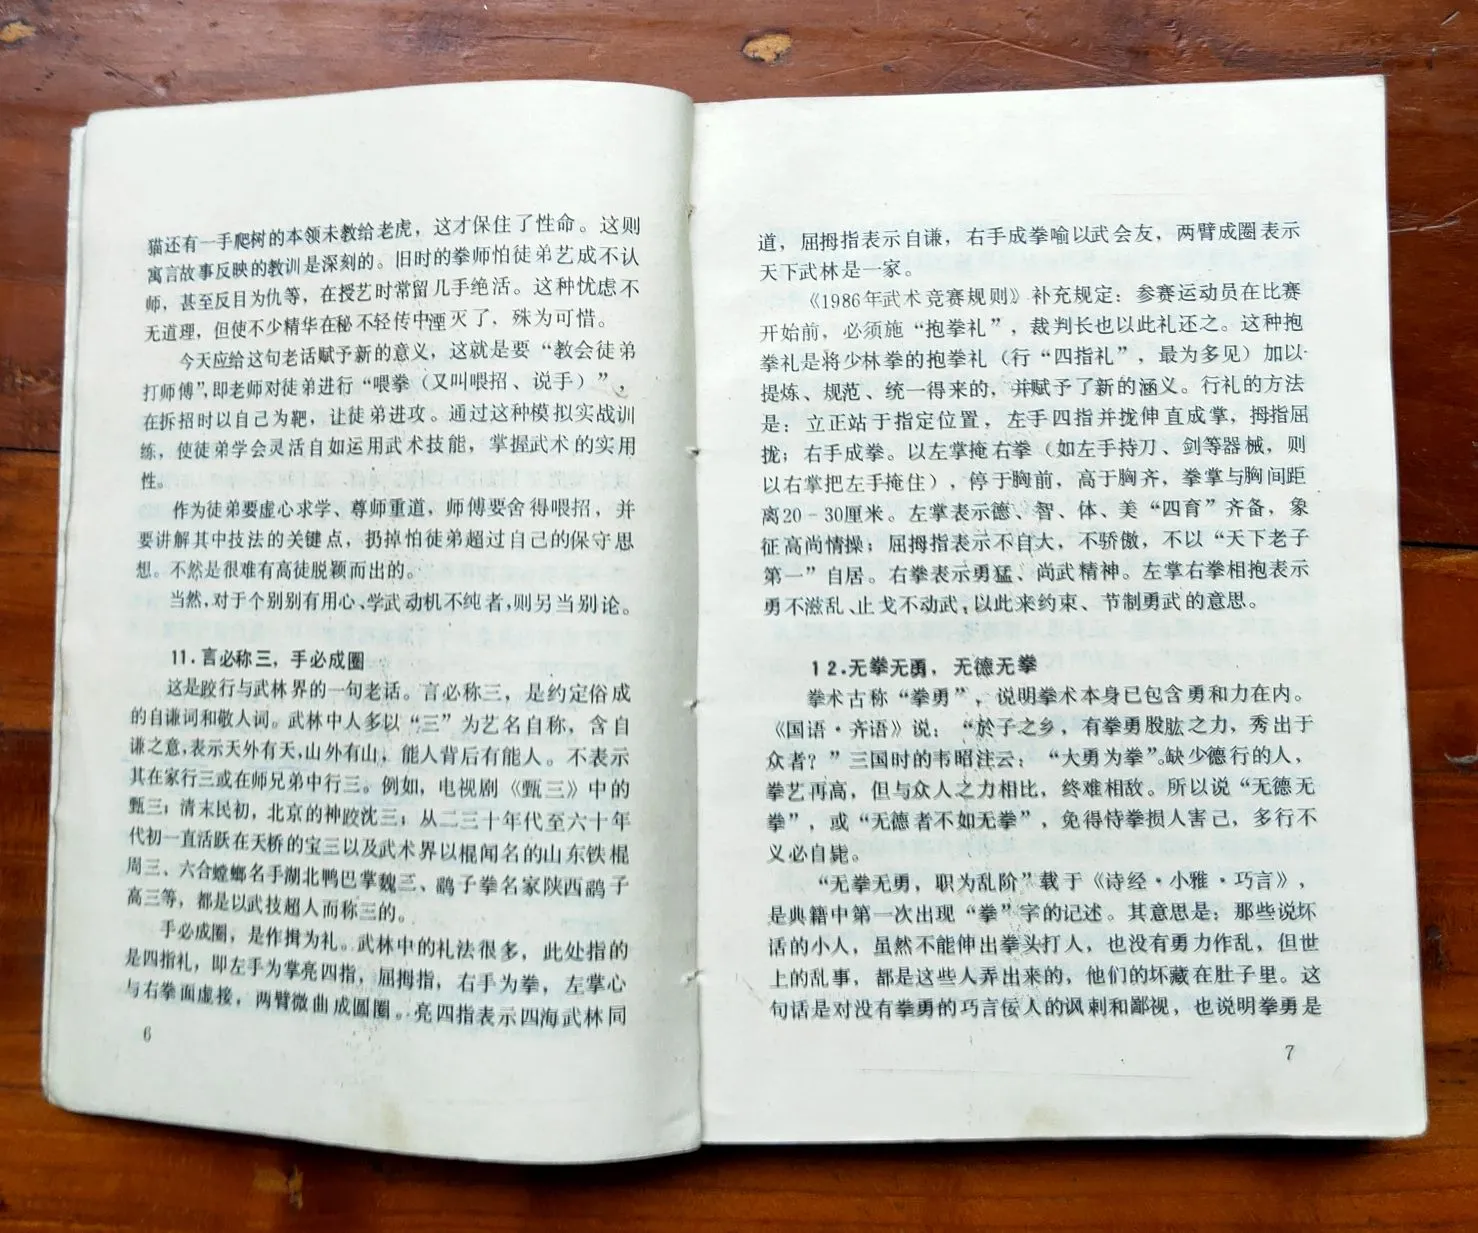 猫还有一手爬树的本领未教给老虎，这才保住了性命。这则
寓言故事反映的教训是深刻的。旧时的拳师怕徒弟艺成不认
师，甚至反目为仇等，在授艺时常留几手绝活。这种忧虑不
无道理，但使不少精华在秘不轻传中湮灭了，殊为可惜。
今天应给这句老话赋予新的意义，这就是要“教会徒弟
打师傅”，即老师对徒弟进行“喂拳（又叫喂招、说手）”，
在拆招时以自己为靶，让徒弟进攻。通过这种模拟实战训
练，使徒弟学会灵活自如运用武术技能，掌握武术的实用
性。
作为徒弟要虚心求学、尊师重道，师傅要舍得喂招，并
要讲解其中技法的关键点，扔掉怕徒弟超过自己的保守思
想。不然是很难有高徒脱颖而出的。
当然，对于个别别有用心、学武动机不纯者，则另当别论。
11.言必称三，手必成圈
这是跤行与武林界的一句老话。言必称三，是约定俗成
的自谦词和敬人词。武林中人多以“三”为艺名自称，含自
谦之意，表示天外有天，山外有山，能人背后有能人。不表示
其在家行三或在师兄弟中行三。例如，电视剧《甄三》中的
甄三；清末民初，北京的神跤沈三；从二三十年代至六十年
代初一直活跃在天桥的宝三以及武术界以棍闻名的山东铁棍
周三、六合螳螂名手湖北鸭巴掌魏三、鹞子拳名家陕西鹞子
高三等，都是以武技超人而称三的。
手必成圈，是作揖为礼。武林中的礼法很多，此处指的
是四指礼，即左手为掌亮四指，屈拇指，右手为拳，左掌心
与右拳面虚接，两臂微曲成圆圈。亮四指表示四海武林同
6
道，屈拇指表示自谦，右手成拳喻以武会友，两臂成圈表示
天下武林是一家。
《1986年武术竞赛规则》补充规定：参赛运动员在比赛
开始前，必须施“抱拳礼”，裁判长也以此礼还之。这种抱
拳礼是将少林拳的抱拳礼（行“四指礼”，最为多见）加以
提炼、规范、统一得来的，并赋予了新的涵义。行礼的方法
是：立正站于指定位置，左手四指并拢伸直成掌，拇指屈
拢；右手成拳。以左掌掩右拳（如左手持刀、剑等器械，则
以右掌把左手掩住），停于胸前，高于胸齐，拳掌与胸间距
离20－30厘米。左掌表示德、智、体、美“四育”齐备，象
征高尚情操；屈拇指表示不自大，不骄傲，不以“天下老子
第一”自居。右拳表示勇猛、尚武精神。左掌右拳相抱表示
勇不滋乱、止戈不动武，以此来约束、节制勇武的意思。
12.无拳无勇，无德无拳
拳术古称“拳勇”，说明拳术本身已包含勇和力在内。
《国语·齐语》说：“於子之乡，有拳勇股肱之力，秀出于
众者？”三国时的韦昭注云：“大勇为拳”。缺少德行的人，
拳艺再高，但与众人之力相比，终难相敌。所以说“无德无
拳”，或“无德者不如无拳”，免得恃拳损人害己，多行不
义必自毙。
“无拳无勇，职为乱阶”载于《诗经·小雅·巧言》，
是典籍中第一次出现“拳”字的记述。其意思是：那些说坏
话的小人，虽然不能伸出拳头打人，也没有勇力作乱，但世
上的乱事，都是这些人弄出来的，他们的坏藏在肚子里。这
句话是对没有拳勇的巧言佞人的讽刺和鄙视，也说明拳勇是
7